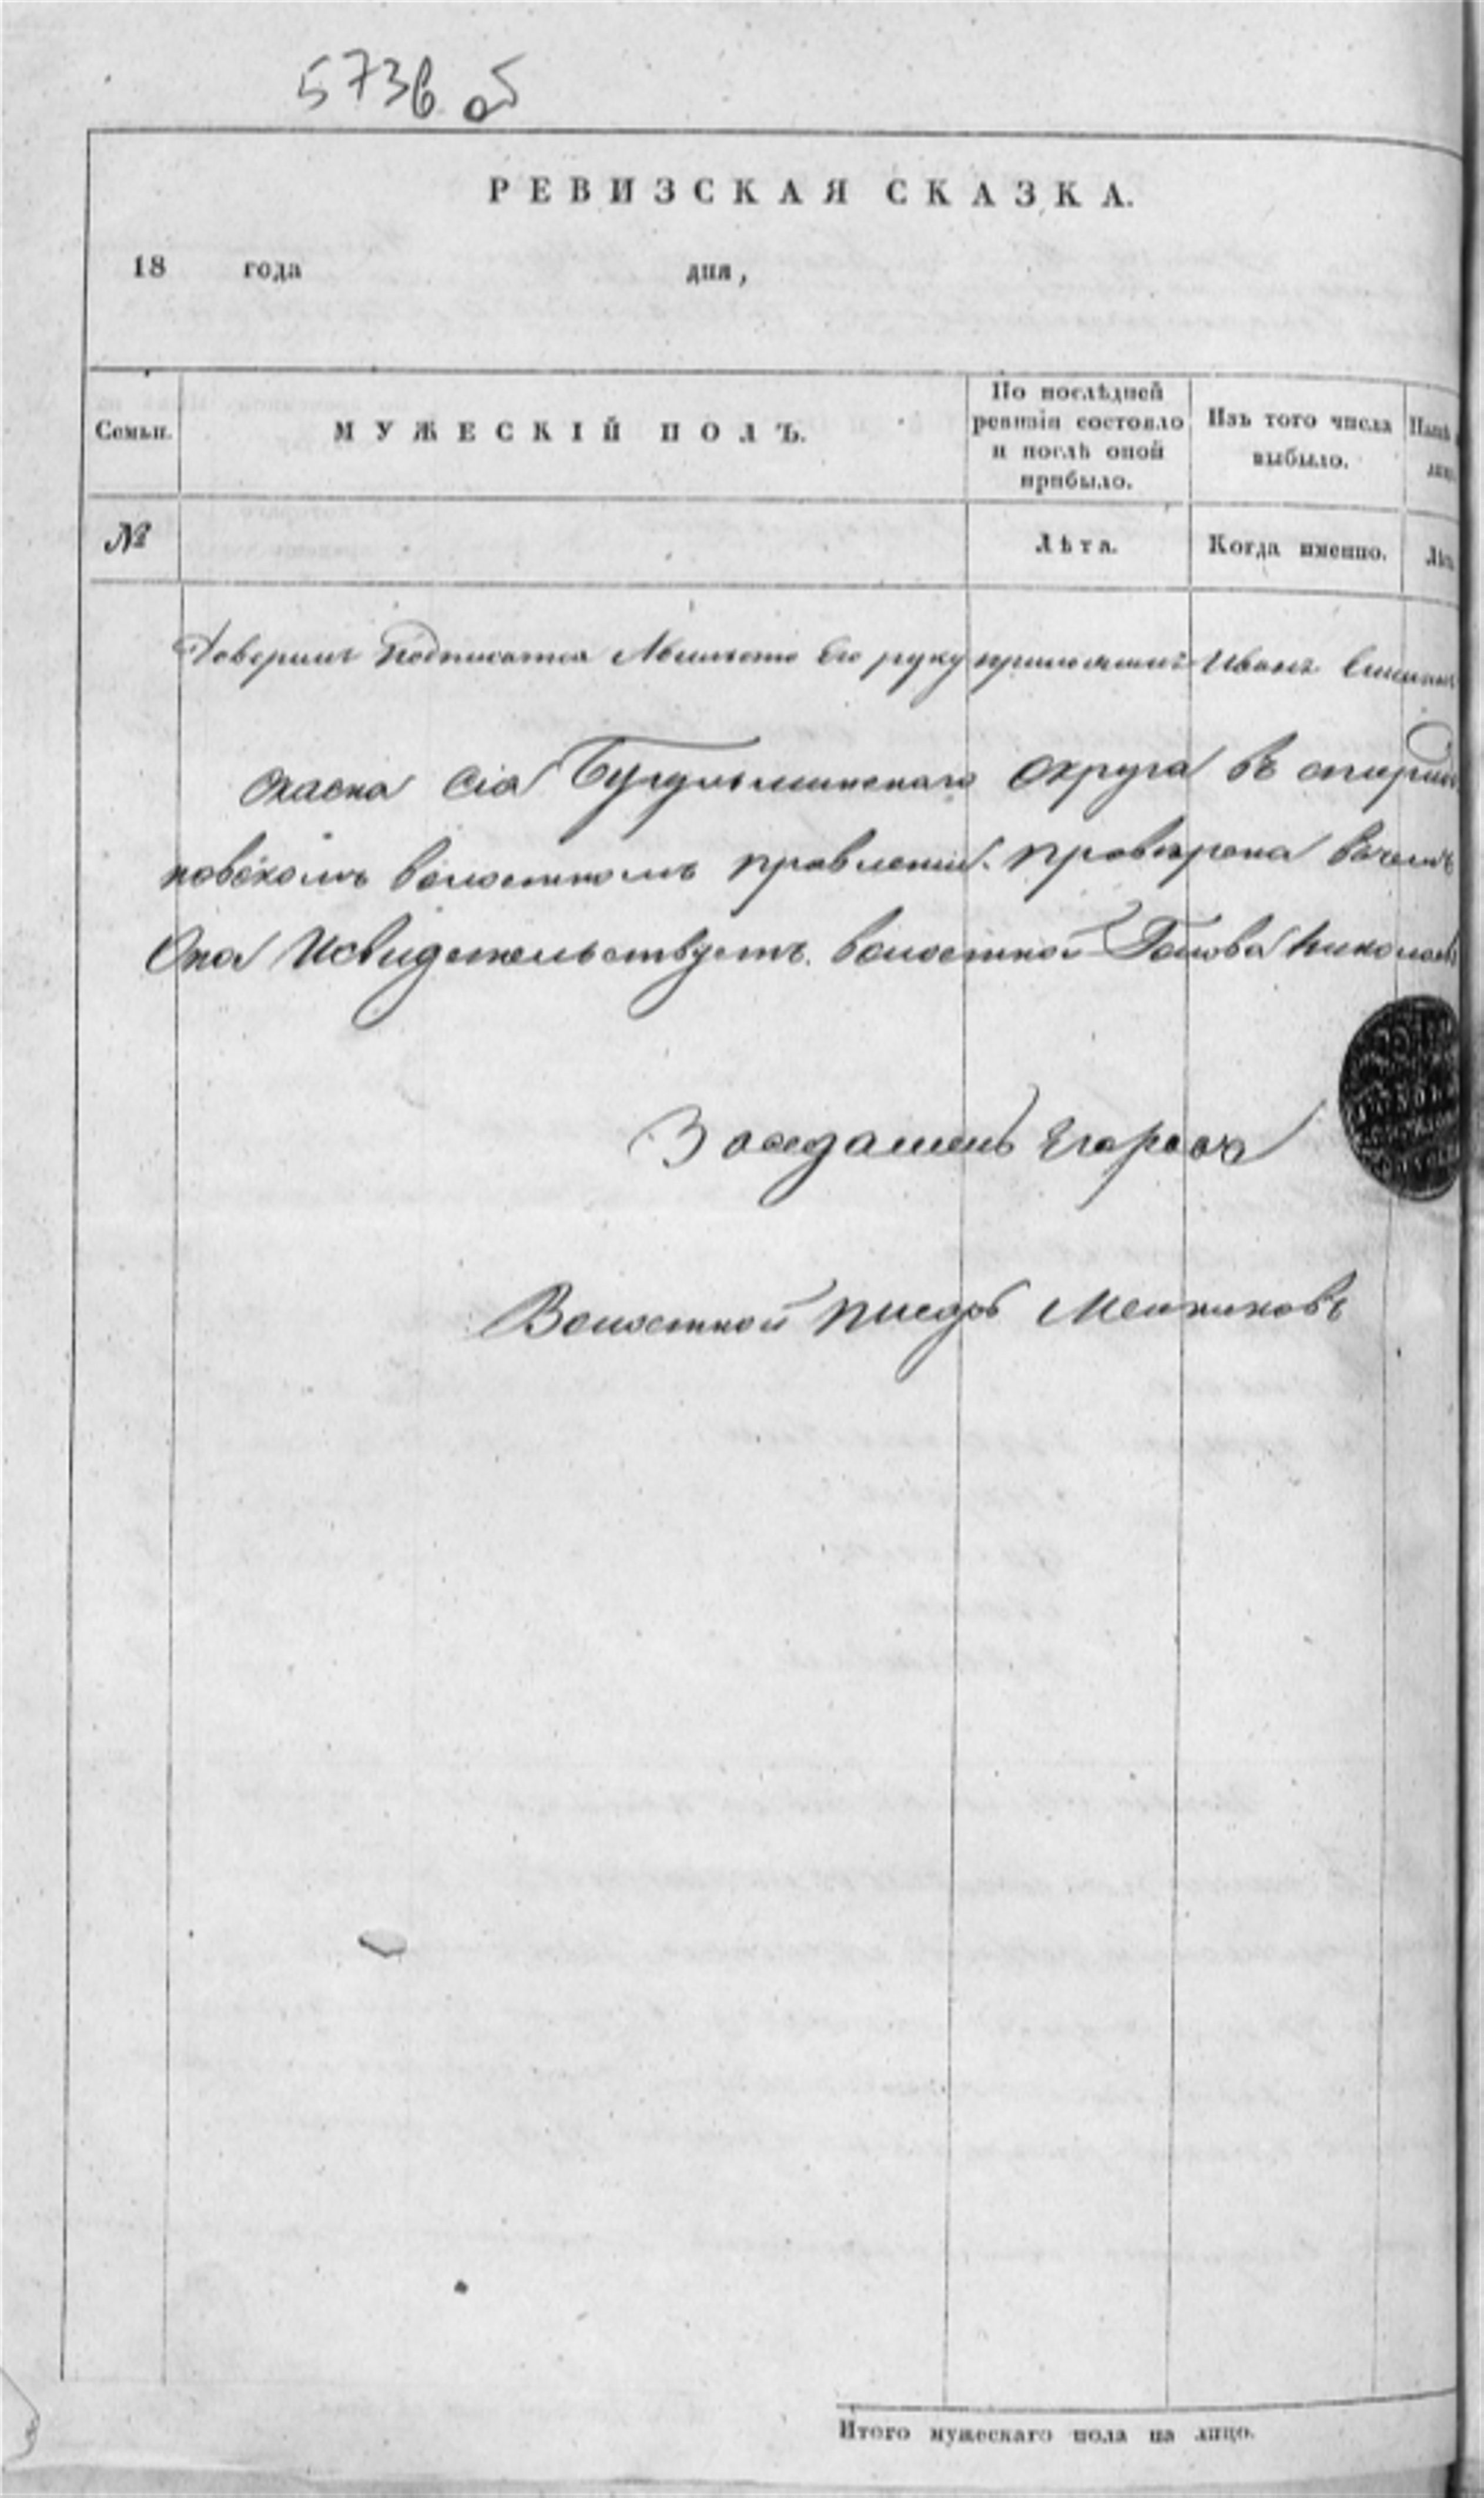 573в об
РЕВИЗСКАЯ СКАЗКА.
18 года дня,
Семьи. МУЖЕСКІЙ ПОЛЪ. По послѣдней ревизіи состояло и послѣ оной прибыло. Изъ того числа выбыло.
№ Лѣта. Когда именно.
подписатся его руку приложилъ Иванъ
Скаска сія Бугульминскаго округа въ
новскомъ волостномъ правленіи проверена вочемъ
Она Исвидетельствуетъ. волостной Голова Николаевъ
Заседатель Егоров
Волостной писарь Мельниковъ
Итого мужескаго пола на лицо.